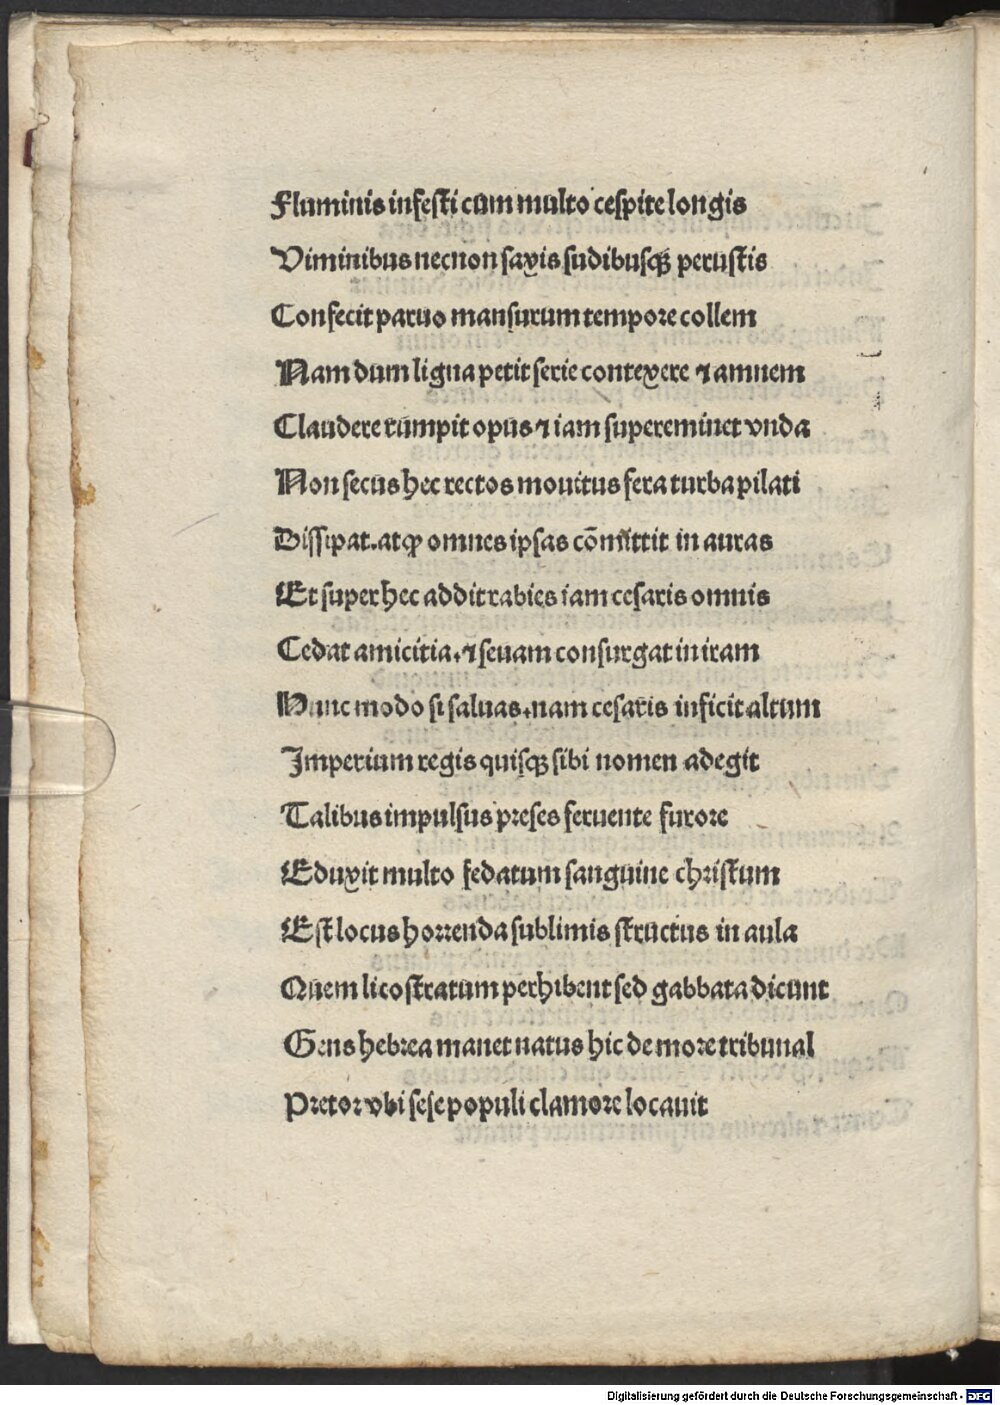 Fluminis infesti cum multo cespite longis
Viminibus necnon saxis sudibusqꝫ perustis
Confecit paruo mansurum tempore collem
Nam dum ligna petit serie contexere ⁊ amnem
Claudere rumpit opus ⁊ iam supereminet vnda
Non secus hec rectos monitus fera turba pilati
Dissipat. atqꝫ omnes ipsas cōmittit in auras
Et super hec addit rabies iam cesaris omnis
Cedat amicitia. ⁊ seuam consurgat in iram
Hunc modo si saluas. nam cesaris inficit altum
Imperium regis quisqꝫ sibi nomen adegit
Talibus impulsus preses feruente furore
Eduxit multo fedatum sanguine christum
Est locus horrenda sublimis structus in aula
Quem licostratum perhibent sed gabbata dicunt
Gens hebrea manet natus hic de more tribunal
Pretor vbi sese populi clamore locauit
Digitalisierung gefördert durch die Deutsche Forschungsgemeinschaft - DFG